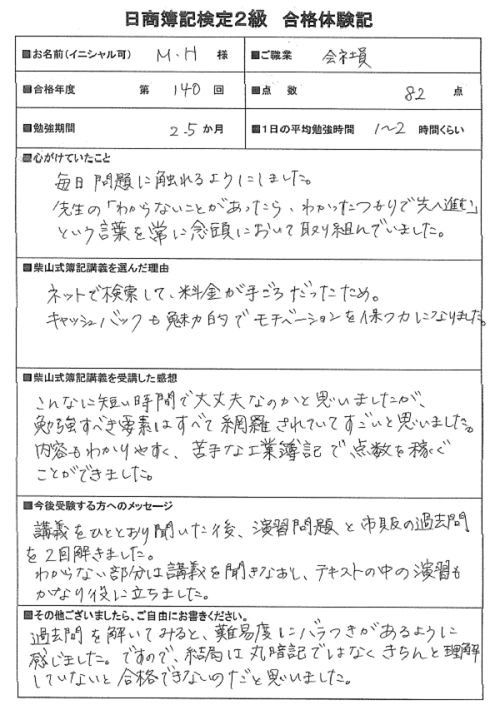 日商簿記検定2級 合格体験記
■お名前(イニシャル可) M・H 様 ■ご職業 会社員
■合格年度 第 140 回 ■点 数 82 点
■勉強期間 2.5 か月 ■1日の平均勉強時間 1〜2 時間くらい
■心がけていたこと
毎日問題に触れるようにしました。
先生の「わからないことがあったら、わかったつもりで先へ進む」
という言葉を常に念頭において取り組んでいました。
■柴山式簿記講義を選んだ理由
ネットで検索して、料金が手ごろだったため。
キャッシュバックも魅力的でモチベーションを保つ力になりました。
■柴山式簿記講義を受講した感想
こんなに短い時間で大丈夫なのかと思いましたが、
勉強すべき要素はすべて網羅されていてすごいと思いました。
内容もわかりやすく、苦手な工業簿記で点数を稼ぐ
ことができました。
■今後受験する方へのメッセージ
講義をひととおり聞いた後、演習問題と市販の過去問
を2回解きました。
わからない部分は講義を聞きなおし、テキストの中の演習も
かなり役に立ちました。
■その他ございましたら、ご自由にお書きください。
過去問を解いてみると、難易度にバラつきがあるように
感じました。ですので、結局は丸暗記ではなくきちんと理解
していないと合格できないのだと思いました。